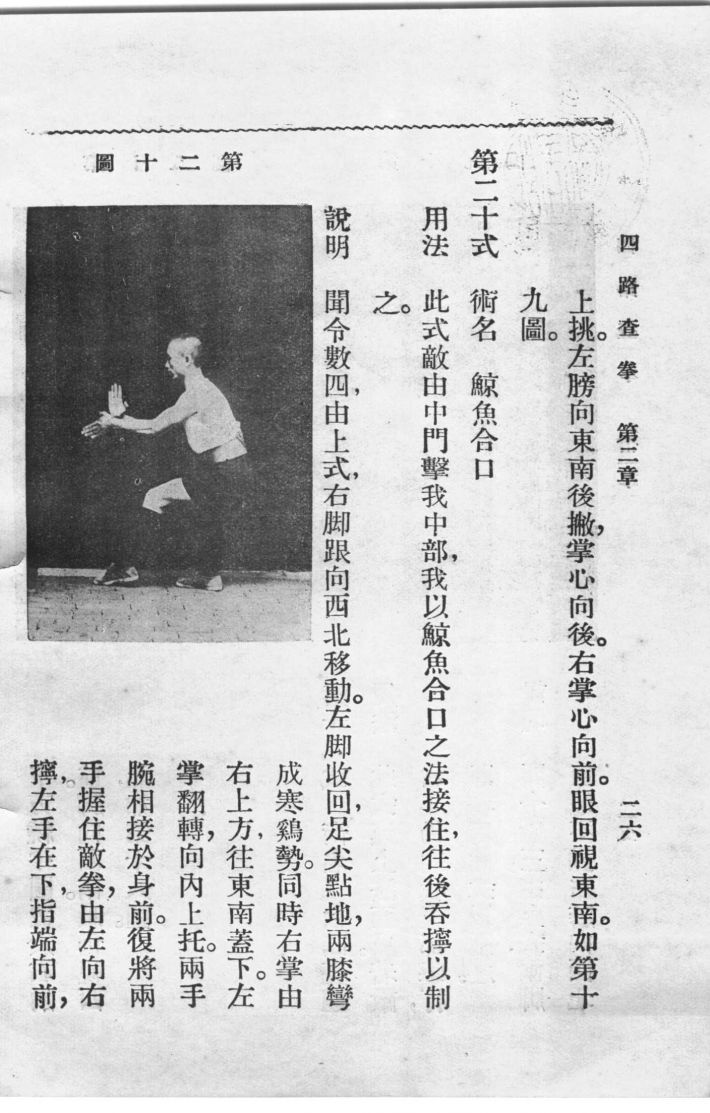 四路查拳　第二章　二六
上挑。左膀向東南後撇，掌心向後。右掌心向前。眼回視東南。如第十
九圖。
第二十式　術名　鯨魚合口
用法　此式敵由中門擊我中部，我以鯨魚合口之法接住，往後吞擰以制
之。
說明　聞令數四，由上式，右脚跟向西北移動。左脚收回，足尖點地，兩膝彎
成寒鷄勢。同時右掌由
右上方，往東南蓋下。左
掌翻轉，向內上托。兩手
腕相接於身前。復將兩
手握住敵拳，由左向右
擰。左手在下。指端向前，
第二十圖